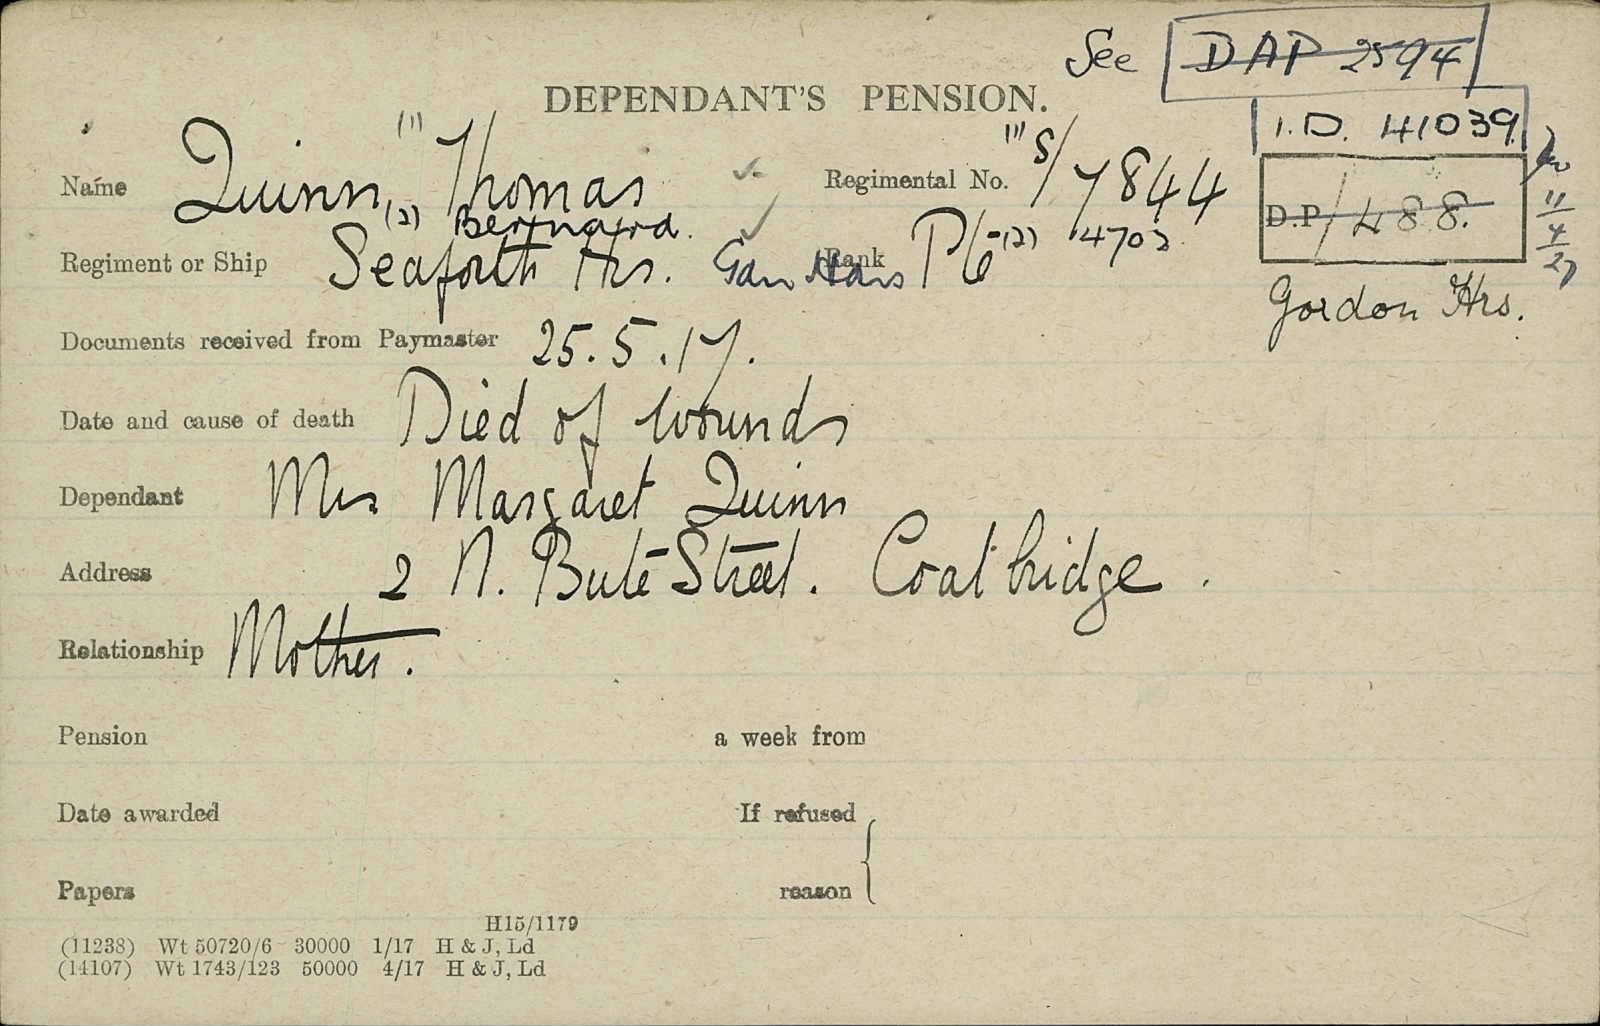 See DAP 2594
DEPENDANT'S PENSION.
I.D. 41039
Name Quinn, (1) Thomas Regimental No. (1) S/7844
(2) Bernard. (2) 4702
D.P/488.
11/4/27
Regiment or Ship Seaforth Hrs. Rank Pte
Gordon Hrs.
Documents received from Paymaster 25.5.17.
Date and cause of death Died of wounds
Dependant Mrs Margaret Quinn
Address 2 N. Bute Street. Coatbridge.
Relationship Mother.
Pension a week from
Date awarded If refused
Papers reason
H15/1179
(11238) Wt 50720/6 30000 1/17 H & J, Ld
(14107) Wt 1743/123 50000 4/17 H & J, Ld